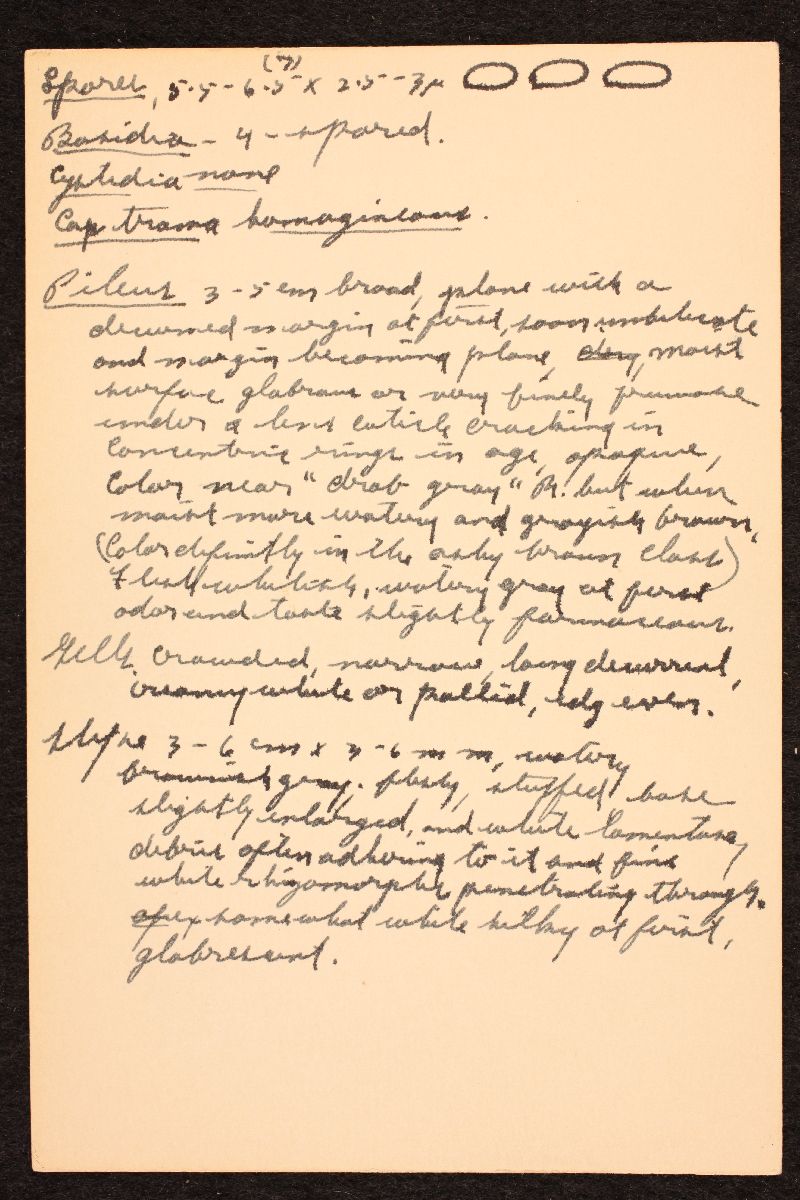 (7)
Spores, 5.5-6.5 x 2.5-3µ
Basidia - 4-spored.
Cystidia none
Cap trama homogineous.
Pileus 3-5 cm broad, plane with a
decurved margin at first, soon umbilicate
and margin becoming plane, dry, moist
surface glabrous or very finely pruinose
under a lens cuticle cracking in
concentric rings in age, opaque,
Color near "drab gray" R. but when
moist more watery and grayish brown.
(Color definitly in the ashy brown class)
Flesh whitish, watery gray at first
odor and taste slightly farinaceous.
Gills crowded, narrow, long decurrent,
creamy white or pallid, edg even.
Stipe 3-6 cm x 3-6 mm, watery
brownish gray. stuffed base
slightly enlarged, and white tomentose,
debris often adhering to it and fine
white rhizomorphs penetrating through.
apex somewhat white silky at first,
glabrescent.